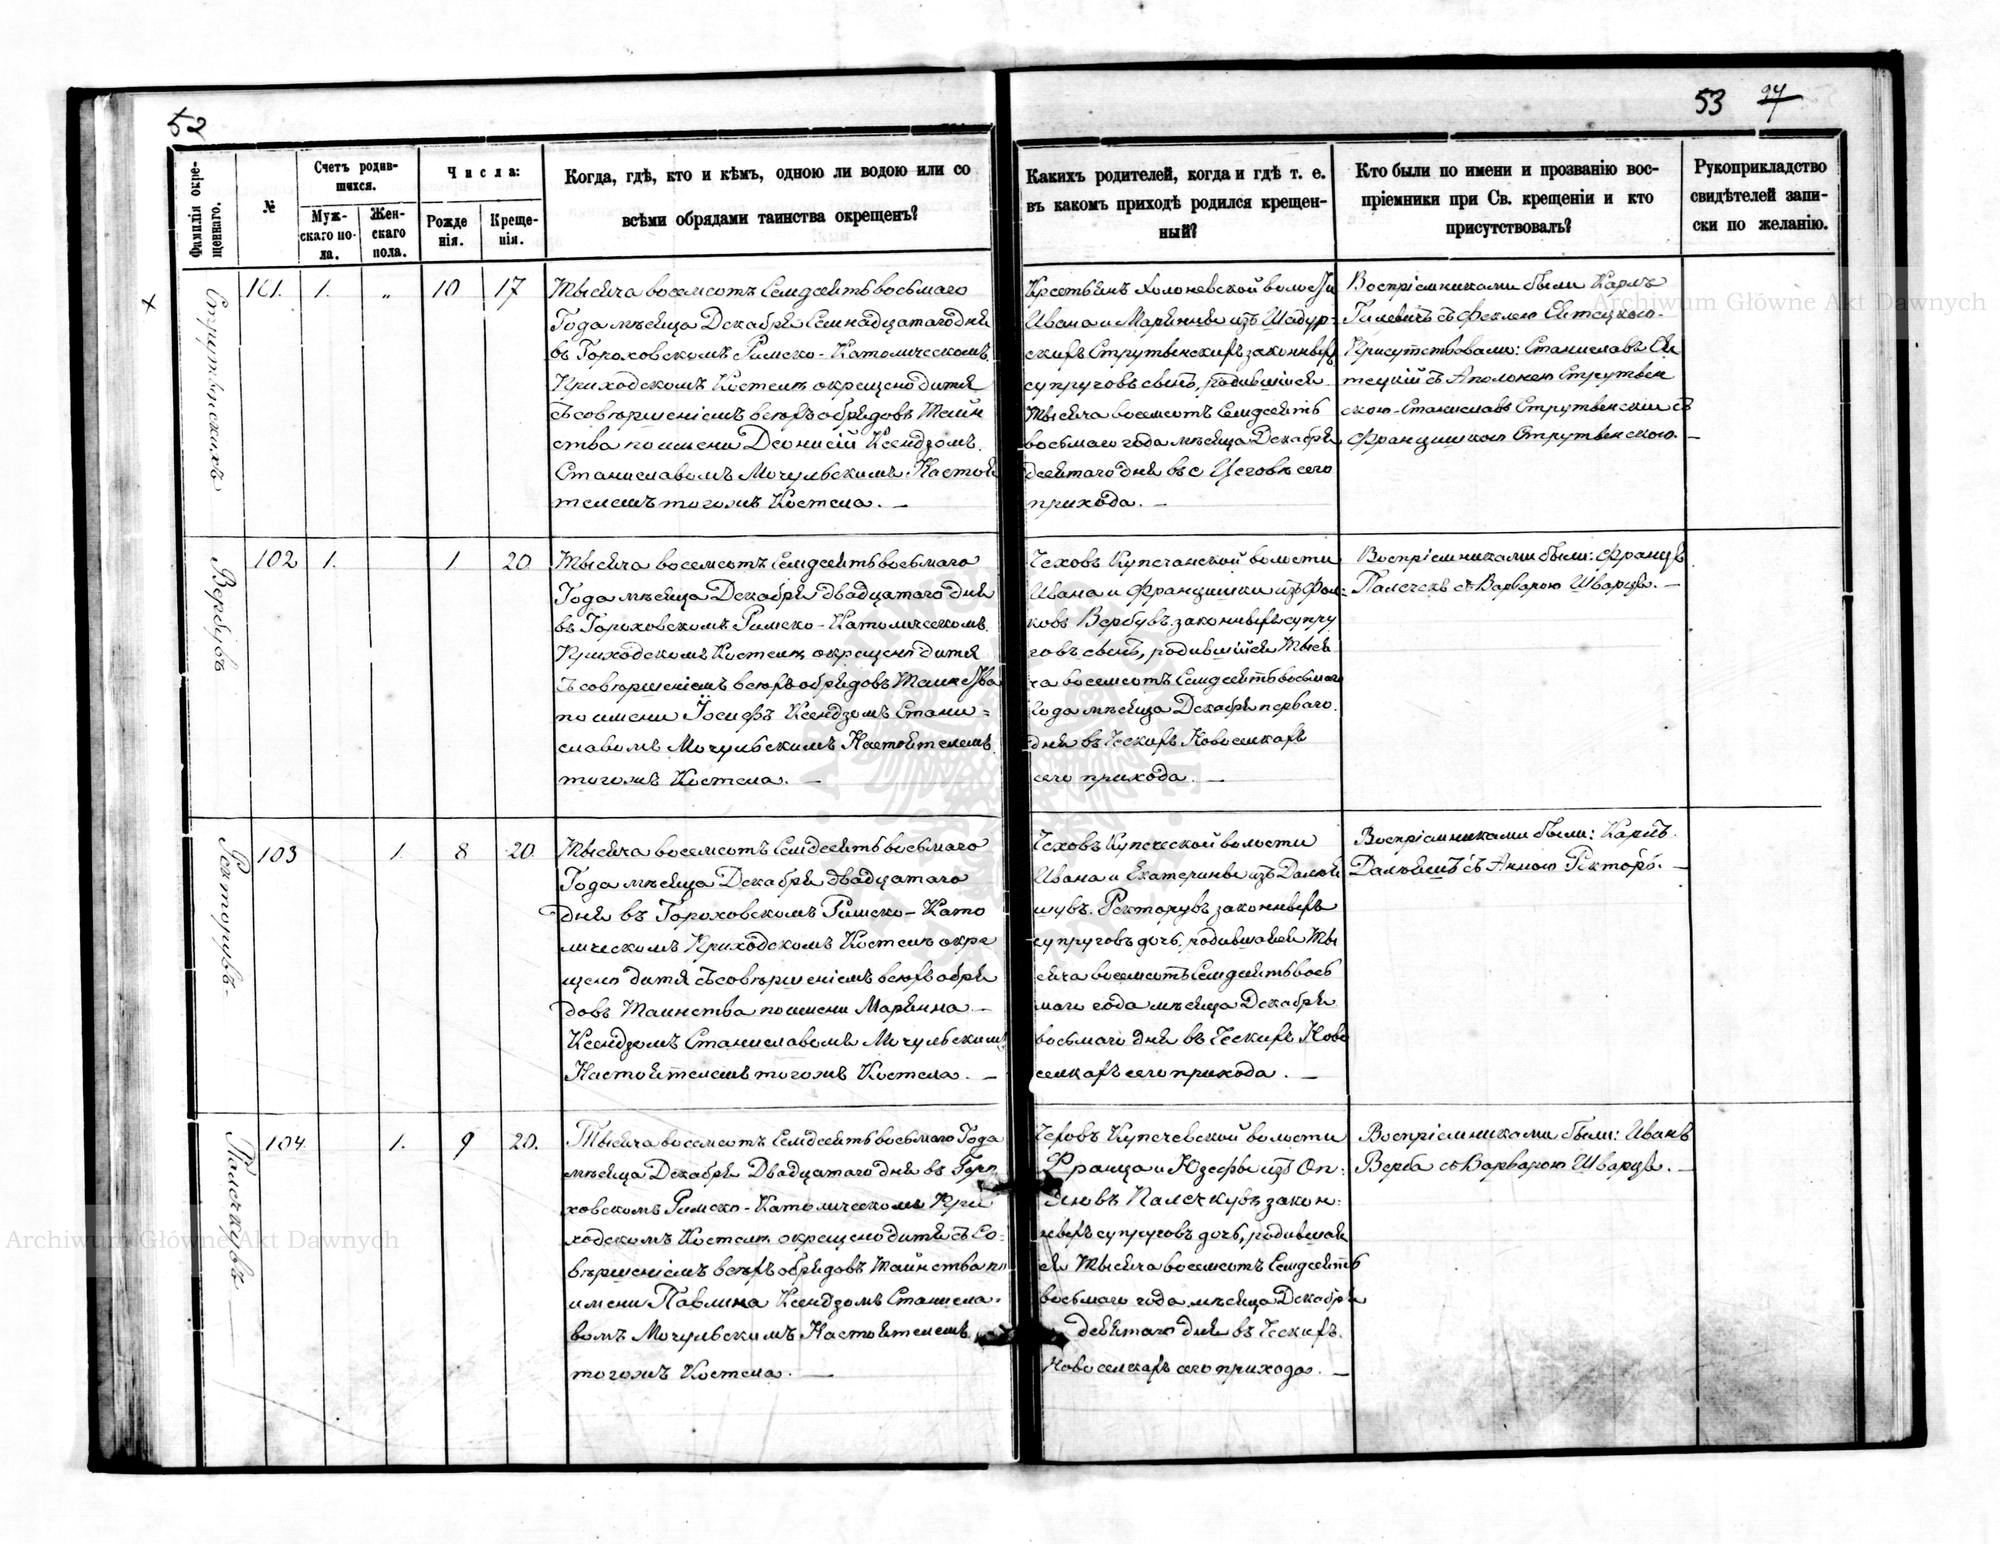 52
Фамиліи окре-
щеннаго.
№
Счетъ родив-
шихся.
Муж-
скаго по-
ла.
Жен-
скаго
пола.
Числа:
Рожде
нія.
Креще-
нія.
Когда, гдѣ, кто и кѣмъ, одною ли водою или со
всѣми обрядами таинства окрещенъ?
Струтынскихъ
101. 1. „ 10 17
Тысяча восемсотъ Семдесятъ восьмаго
Года мѣсяца Декабря Семнадцатаго дня
въ Гороховскомъ Римско-Католическомъ
Приходскомъ Костелѣ окрещено дитя
съ совершеніемъ всѣхъ обрядовъ Таин
ства по имени Деонисій Ксендзомъ
Станиславомъ Мочульскимъ Настоя
телемъ тогожъ Костела. —
Вербувъ
102 1. 1 20
Тысяча восемсотъ Семдесятъ восьмаго
Года мѣсяца Декабря двадцатаго дня
въ Гороховскомъ Римско-Католическомъ
Приходскомъ Костелѣ окрещено дитя
съ совершеніемъ всѣхъ обрядовъ Таинства
по имени Іосифъ Ксендзомъ Стани=
славомъ Мочульскимъ Настоятелемъ
тогожъ Костела. —
Ректорувъ-
103 1. 8 20.
Тысяча восемсотъ Семдесятъ восьмаго
Года мѣсяца Декабря двадцатаго
дня въ Гороховскомъ Римско-Като
лическомъ Приходскомъ Костелѣ окре
щено дитя съ совершеніемъ всѣхъ обря
довъ Таинства по имени Марянна —
Ксендзомъ Станиславомъ Мочульскимъ
Настоятелемъ тогожъ Костела. —
Палечкувъ
104. 1. 9 20.
Тысяча восемсотъ Семдесятъ восьмаго Года
мѣсяца Декабря Двадцатаго дня въ Горо
ховскомъ Римско-Католическомъ При
ходскомъ Костелѣ окрещено дитя съ Со-
вершеніемъ всѣхъ обрядовъ Таинства по
имени Павлина Ксендзомъ Станисла-
вомъ Мочульскимъ Настоятелемъ
тогожъ Костела. —
53 27
Какихъ родителей, когда и гдѣ т. е.
въ какомъ приходѣ родился крещен-
ный?
Кто были по имени и прозванію вос-
пріемники при Св. крещеніи и кто
присутствовалъ?
Рукоприкладство
свидѣтелей запи-
си по желанію.
Крестьянъ Холоневской волости
Ивана и Марянны изъ Шадур-
скихъ Струтынскихъ законныхъ
супруговъ сынъ, родившійся
Тысяча восемсотъ Семдесятъ
восьмаго года мѣсяца Декабря
десятаго дня въ с Цеговѣ сего
прихода. —
Воспріемниками были Карлъ
Гилевичъ съ Феклею
Присутствовали: Станиславъ
съ Аполонею Струтын
скою-Станиславъ Струтынскій съ
Францишкою Струтынскою. —
Чеховъ Купечанской волости
Ивана и Францишки изъ
Вербувъ законныхъ супру
говъ сынъ, родившійся Тыся
ча восемсотъ Семдесятъ восьмаго
Года мѣсяца Декабря перваго
дня въ Ческихъ Новоселкахъ
сего прихода. —
Воспріемниками были: Францъ
Палечекъ съ Варварою Шварцъ. —
Чеховъ Купеческой волости
Ивана и Екатерины изъ
Ректорувъ законныхъ
супруговъ дочь, родившаяся Ты
сяча восемсотъ Семдесятъ вось
маго года мѣсяца Декабря
восьмаго дня въ Ческихъ Ново
селкахъ сего прихода. —
Воспріемниками были: Карлъ
съ Анною Ректоръ. —
Чеховъ Купечевской волости
Франца и Юзефы изъ
Палечкувъ закон-
ныхъ супруговъ дочь, родившая
ся Тысяча восемсотъ Семдесятъ
восьмаго года мѣсяца Декабря
девятаго дня въ Ческихъ
Новоселкахъ сего прихода. —
Воспріемниками были: Иванъ
Верба съ Варварою Шварцъ. —
Archiwum Główne Akt Dawnych
Archiwum Główne Akt Dawnych